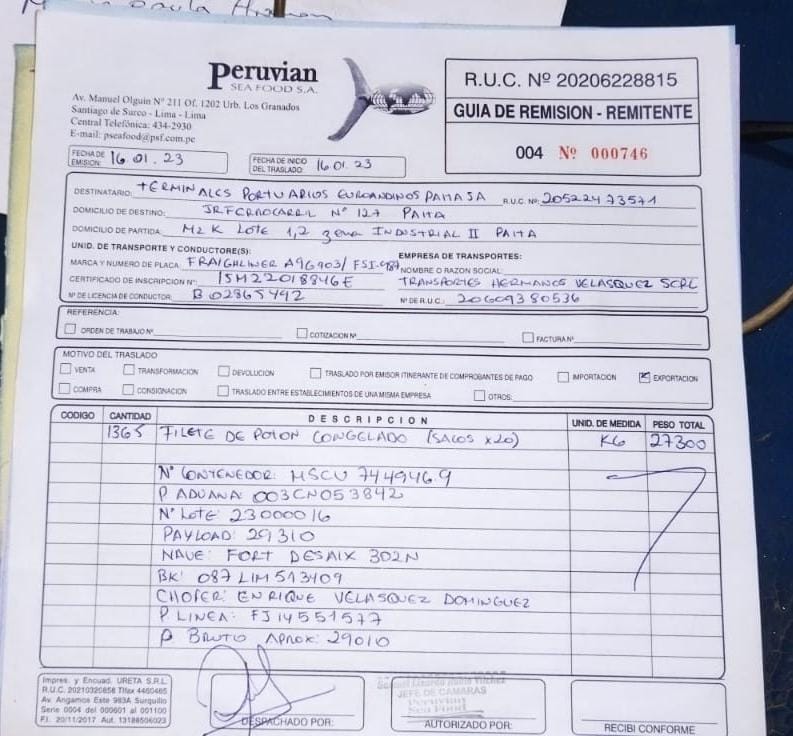 Peruvian
SEA FOOD S.A.
Av. Manuel Olguin Nº 211 Of. 1202 Urb. Los Granados
Santiago de Surco - Lima - Lima
Central Telefónica: 434-2930
E-mail: pseafood@psf.com.pe
R.U.C. Nº 20206228815
GUIA DE REMISION - REMITENTE
004 Nº 000746
FECHA DE EMISION: 16.01.23
FECHA DE INICIO DEL TRASLADO: 16.01.23
DESTINATARIO: TERMINALES PORTUARIOS EUROANDINOS PAITA SA R.U.C. Nº: 20522473571
DOMICILIO DE DESTINO: JR FERROCARRIL Nº 127 PAITA
DOMICILIO DE PARTIDA: MZ K LOTE 1,2 zona INDUSTRIAL II PAITA
UNID. DE TRANSPORTE Y CONDUCTORE(S):
MARCA Y NUMERO DE PLACA: FRAIGHLINER A9G903/ FSI-987
CERTIFICADO DE INSCRIPCION Nº: 15M22018846E
Nº DE LICENCIA DE CONDUCTOR: B 02865492
EMPRESA DE TRANSPORTES:
NOMBRE O RAZON SOCIAL:
TRANSPORTES HERMANOS VELASQUEZ SCRL
Nº DE R.U.C.: 20609380536
REFERENCIA:
ORDEN DE TRABAJO Nº COTIZACION Nº FACTURA Nº
MOTIVO DEL TRASLADO
VENTA TRANSFORMACION DEVOLUCION TRASLADO POR EMISOR ITINERANTE DE COMPROBANTES DE PAGO IMPORTACION EXPORTACION
COMPRA CONSIGNACION TRASLADO ENTRE ESTABLECIMIENTOS DE UNA MISMA EMPRESA OTROS:
CODIGO CANTIDAD DESCRIPCION UNID. DE MEDIDA PESO TOTAL
1365 FILETE DE POTON CONGELADO (SACOS x20) KG 27300
Nº CONTENEDOR: MSCU 744946.9
P ADUANA: 003CN053842
Nº LOTE: 23000016
PAYLOAD: 29310
NAVE: FORT DESAIX 302N
BK: 087LIM513409
CHOFER: ENRIQUE VELASQUEZ DOMINGUEZ
P LINEA: FJ14551577
P. BRUTO APROX: 29010
Impres. y Encuad. URETA S.R.L.
R.U.C. 20210320858 Tlfax 4460465
Av. Angamos Este 983A Surquillo
Serie 0004 del 000601 al 001100
F.I. 20/11/2017 Aut. 13188506023
DESPACHADO POR:
JEFE DE CAMARAS
Peruvian
Sea Food
AUTORIZADO POR:
RECIBI CONFORME